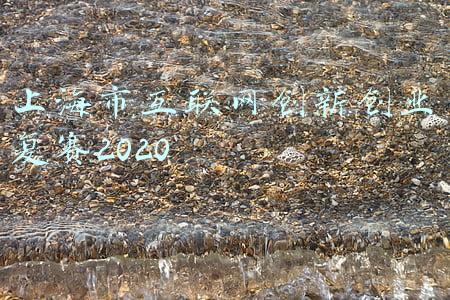 上海市互联网创新创业
复赛2020